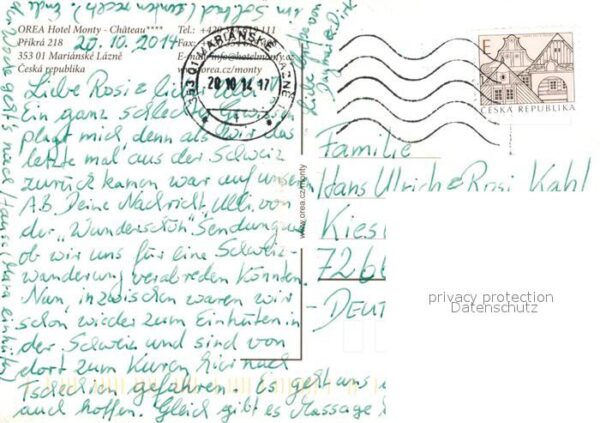 OREA Hotel Monty - Château****
Příkrá 218
353 01 Mariánské Lázně
Česká republika
20.10.2014
Fax:
E-mail: info@hotelmonty.cz
www.orea.cz/monty
353 01 MARIÁNSKÉ LÁZNĚ
20.10.14-17
Liebe Rosi & lieber
Ein ganz schlechtes
plagt mich, denn als wir das
letzte mal aus der Schweiz
zurück kamen war auf unserem
A.B. Deine Nachricht Ulli, von
der „Wunderschön" Sendung u.
ob wir uns für eine Schweiz-
wanderung verabreden könnten.
Nun, inzwischen waren wir
schon wieder zum Einhüten in
der Schweiz und sind von
dort zum Kuren hier nach
Tschechien gefahren. Es geht uns
auch hoffen. Gleich gibt es Massage
der Woche geht's nach Hause (Mara einhüten)
Ende
Liebe Grüße von
Dagmar & Dirk
www.orea.cz/monty
E
ČESKÁ REPUBLIKA
Familie
Hans Ulrich & Rosi Kahl
Kies
726
- DEUT
privacy protection
Datenschutz